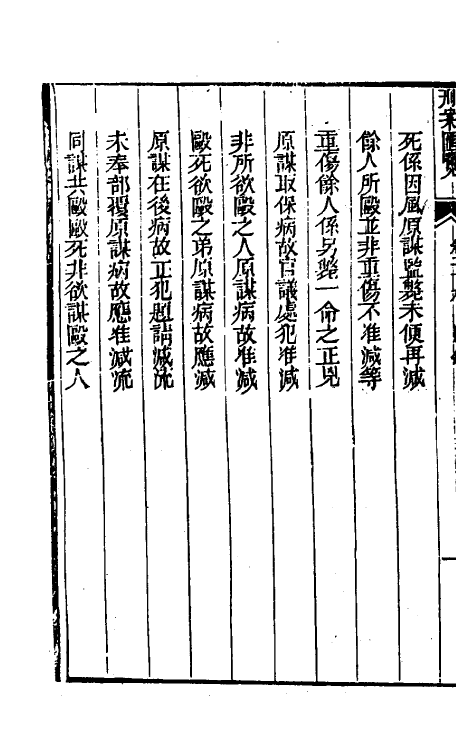 刑案匯覽
死係因風原謀監斃未便再減
餘人所毆並非重傷不准減等
重傷餘人係另斃一命之正兇
原謀取保病故官議處犯准減
非所欲毆之人原謀病故准減
毆死欲毆之弟原謀病故應減
原謀在後病故正犯題請減流
未奉部覆原謀病故應准減流
同謀共毆毆死非欲謀毆之人